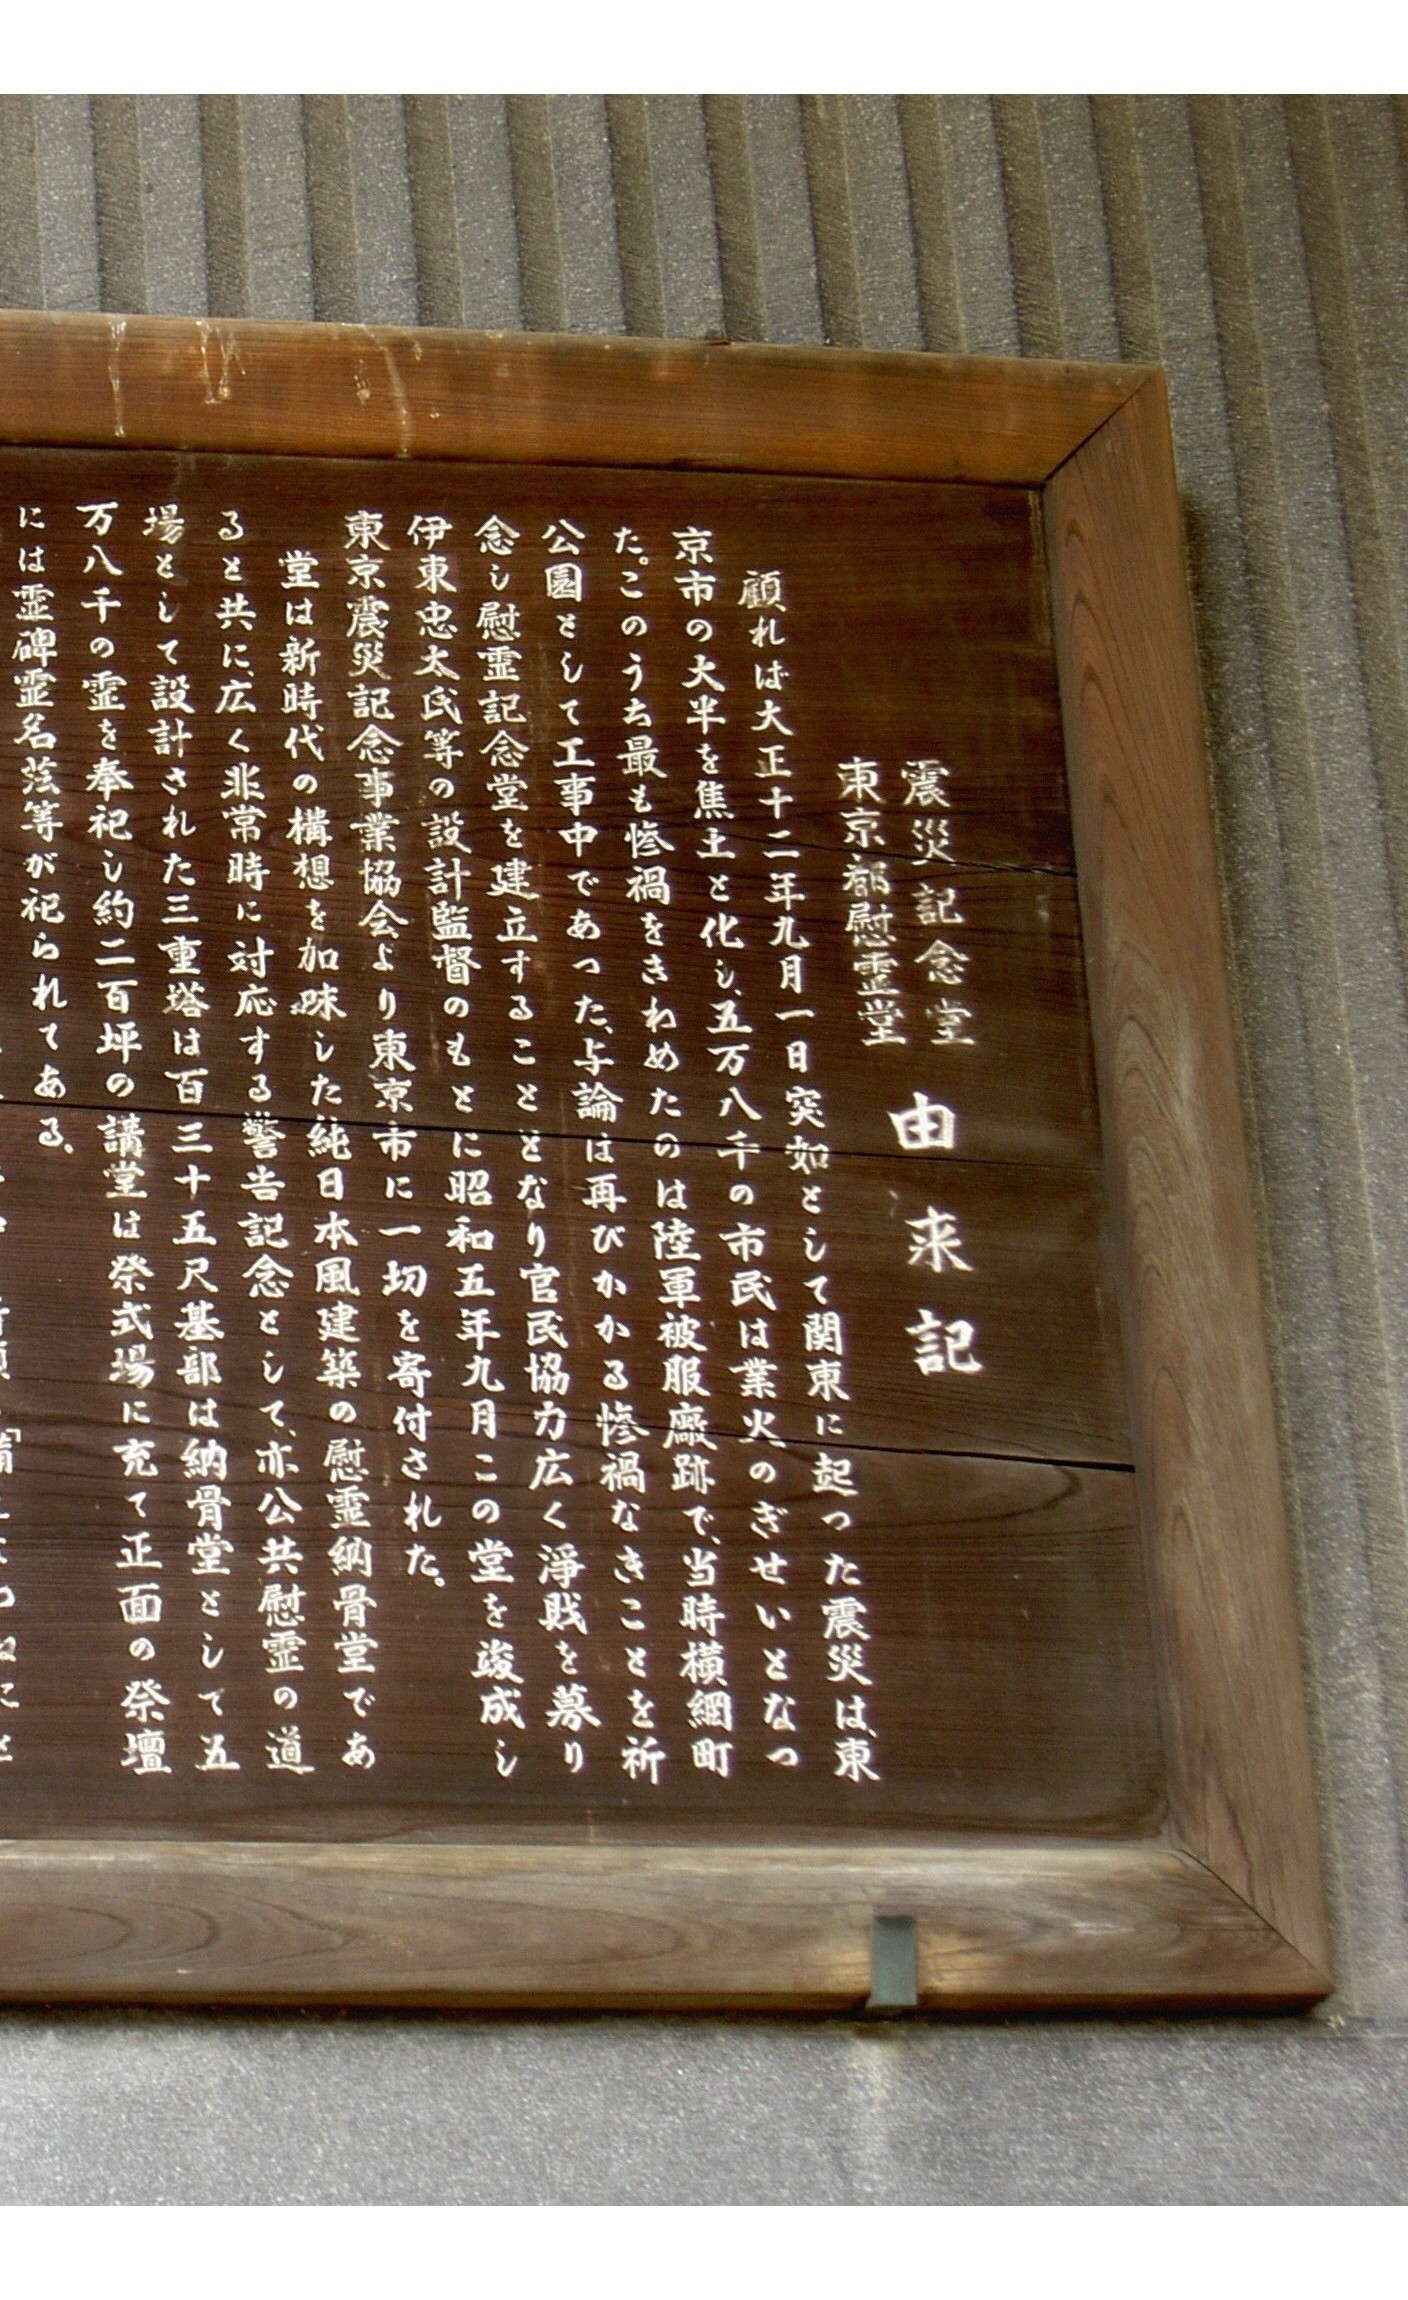 震災記念堂
東京都慰霊堂
由来記
顧れば大正十二年九月一日突如として関東に起った震災は、東
京市の大半を焦土と化し、五万八千の市民は業火のぎせいとなっ
た。このうち最も惨禍をきわめたのは陸軍被服廠跡で、当時横網町
公園として工事中であった、与論は再びかかる惨禍なきことを祈
念し慰霊記念堂を建立することとなり官民協力広く淨賎を募り
伊東忠太氏等の設計監督のもとに昭和五年九月この堂を竣成し
東京震災記念事業協会より東京市に一切を寄付された。
堂は新時代の構想を加味した純日本風建築の慰霊納骨堂であ
ると共に、広く非常時に対応する警告記念として、亦公共慰霊の道
場として設計された三重塔は百三十五尺基部は納骨堂として五
万八千の霊を奉祀し約二百坪の講堂は祭式場に充て正面の祭壇
には霊碑霊名簿等が祀られてある。